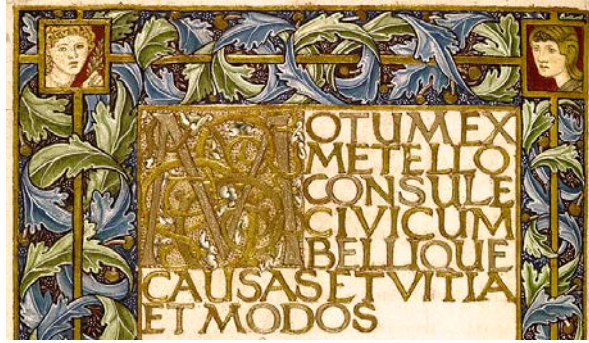 MOTUM EX
METELLO
CONSULE
CIVICUM
BELLIQUE
CAUSAS ET VITIA
ET MODOS